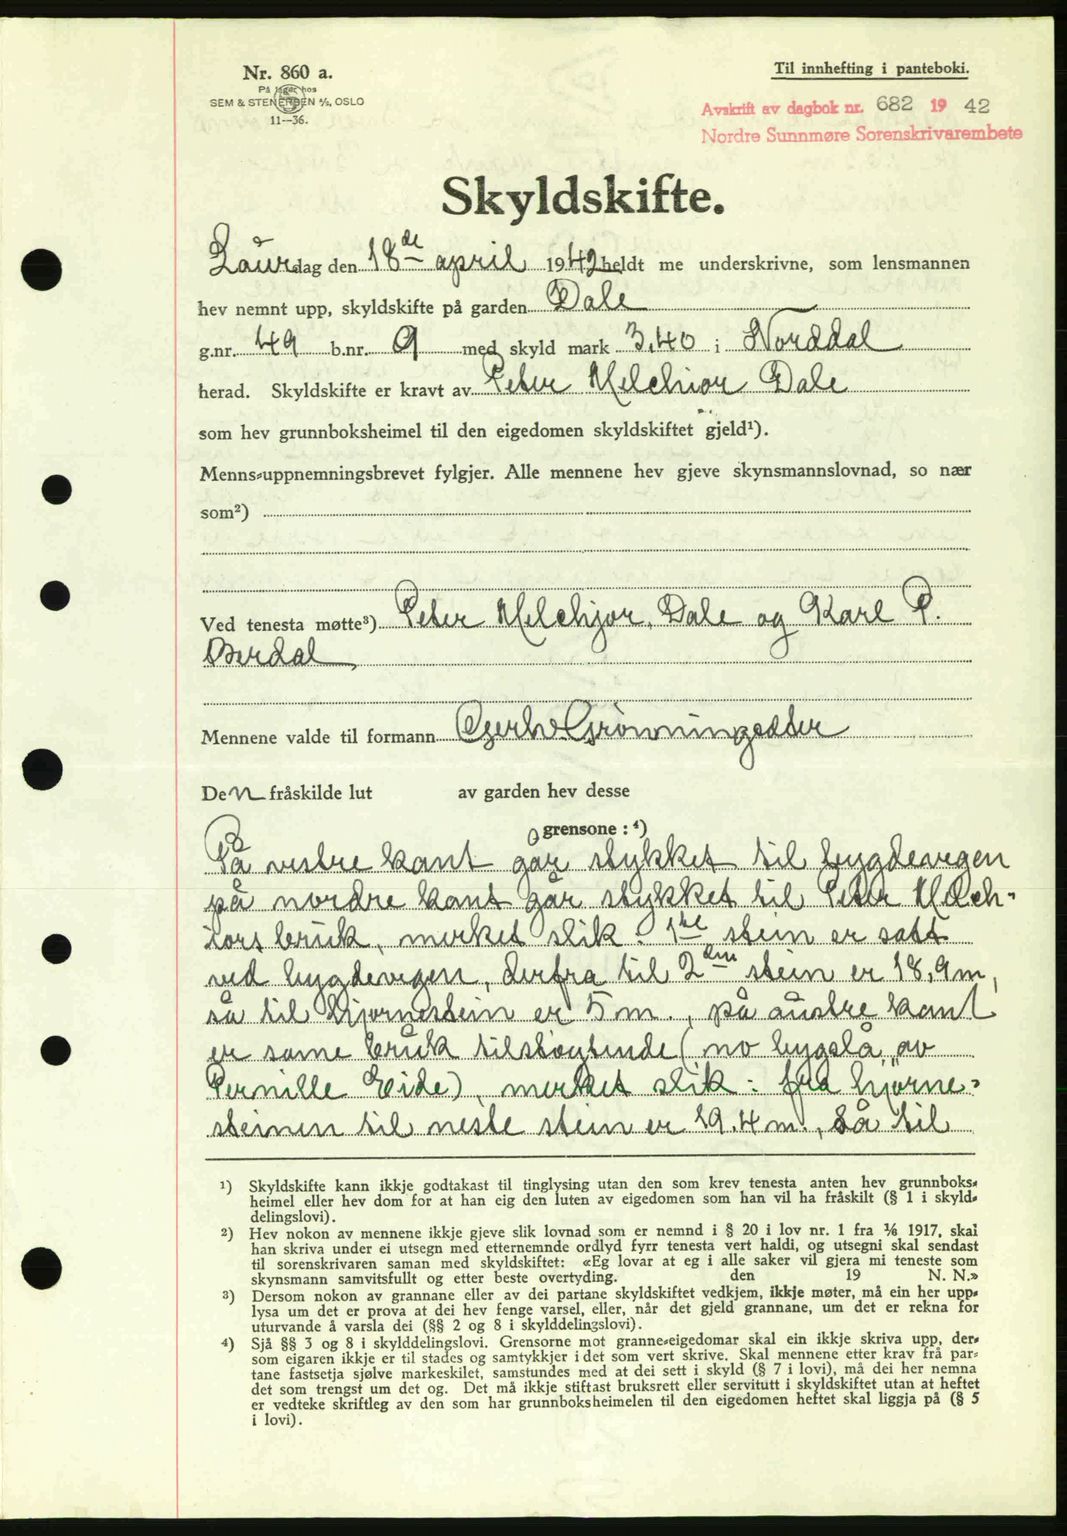 Nr. 860 a.
På lager hos
SEM & STENERSEN A/S, OSLO
11—36.
Til innhefting i panteboki.
Avskrift av dagbok nr. 682 19 42
Nordre Sunnmøre Sorenskrivarembete
Skyldskifte.
Laurdag den 18de april 1942 heldt me underskrivne, som lensmannen
hev nemnt upp, skyldskifte på garden Dale
g.nr. 49 b.nr. 9 med skyld mark 3,40 i Norddal
herad. Skyldskifte er kravt av Peter Melchior Dale
som hev grunnboksheimel til den eigedomen skyldskiftet gjeld¹).
Menns-uppnemningsbrevet fylgjer. Alle mennene hev gjeve skynsmannslovnad, so nær
som²)
Ved tenesta møtte³) Peter Melchjor, Dale og Karl P.
Berdal
Mennene valde til formann Gerh. Grønningsæter
Den fråskilde lut av garden hev desse
grensone : ⁴)
På vestre kant går stykket til bygdevegen
på nordre kant går stykket til Peter Melch-
iors bruk, merket slik: 1ste stein er satt
ved bygdevegen, derfra til 2den stein er 18,9 m,
så til hjørnestein er 5 m., på austre kant
er same bruk tilstøytande (no bygslå av
Pernille Eide), merket slik: frå hjørne-
steinen til neste stein er 19.4 m., så til
¹) Skyldskifte kann ikkje godtakast til tinglysing utan den som krev tenesta anten hev grunnboks-
heimel eller hev dom for at han eig den luten av eigedomen som han vil ha fråskilt (§ 1 i skyld-
delingslovi).
²) Hev nokon av mennene ikkje gjeve slik lovnad som er nemnd i § 20 i lov nr. 1 fra ⅙ 1917, skal
han skriva under ei utsegn med etternemnde ordlyd fyrr tenesta vert haldi, og utsegni skal sendast
til sorenskrivaren saman med skyldskiftet: «Eg lovar at eg i alle saker vil gjera mi teneste som
skynsmann samvitsfullt og etter beste overtyding. den 19 N. N.»
³) Dersom nokon av grannane eller av dei partane skyldskiftet vedkjem, ikkje møter, må ein her upp-
lysa um det er prova at dei hev fenge varsel, eller, når det gjeld grannane, um det er rekna for
uturvande å varsla dei (§§ 2 og 8 i skylddelingslovi).
⁴) Sjå §§ 3 og 8 i skylddelingslovi. Grensorne mot granne-eigedomar skal ein ikkje skriva upp, der-
som eigaren ikkje er til stades og samtykkjer i det som vert skrive. Skal mennene etter krav frå par-
tane fastsetja sjølve markeskilet, samstundes med at dei sett i skyld (§ 7 i lovi), må dei her nemna
det som trengst um det og. Det må ikkje stiftast bruksrett eller servitutt i skyldskiftet utan at heftet
er vedteke skriftleg av den som har grunnboksheimelen til den eigedomen heftet skal liggja på (§ 5
i lovi).